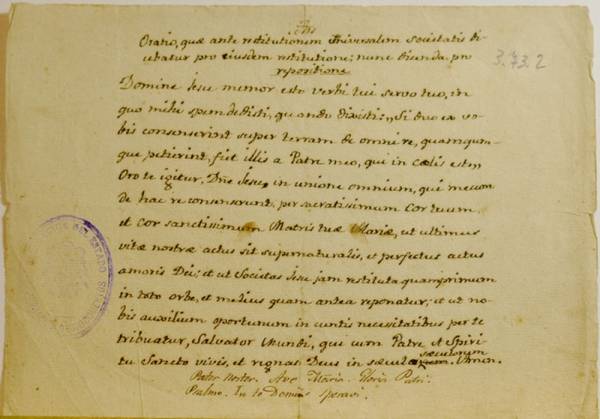 Jhs
Oratio, quæ ante restitutionem Universalem Societatis di
cebatur pro ejusdem restitutione; nunc dicenda pro
repositione
3.73.2
Domine Jesu memor esto verbi tui servo tuo, in
quo mihi spem dedisti, quando dixisti: „Si duo ex vo-
bis consenserint super terram de omni re, quamqum-
que petierint, fiet illis a Patre meo, qui in cœlis est„
Oro te igitur, Dñe Jesu, in unione omnium, qui mecum
de hac re consenserunt, per sacratissimum Cor tuum
et Cor sanctissimum Matris tuæ Mariæ, ut ultimus
vitæ nostræ actus sit supernaturalis, et perfectus actus
amoris Dei; et ut Societas Jesu jam restituta quamprimum
in toto orbe, et melius quam antea reponatur; et ut no-
bis auxilium oportunum in cuntis necesitatibus per te
tribuatur, Salvator Mundi, qui cum Patre et Spiri
tu Sancto vivis, et regnas Deus in sæcula sæculorum. Amen.
Pater Noster. Ave Maria. Gloria Patri.
Psalmo. In te Domine speravi.
DEL ESTADO